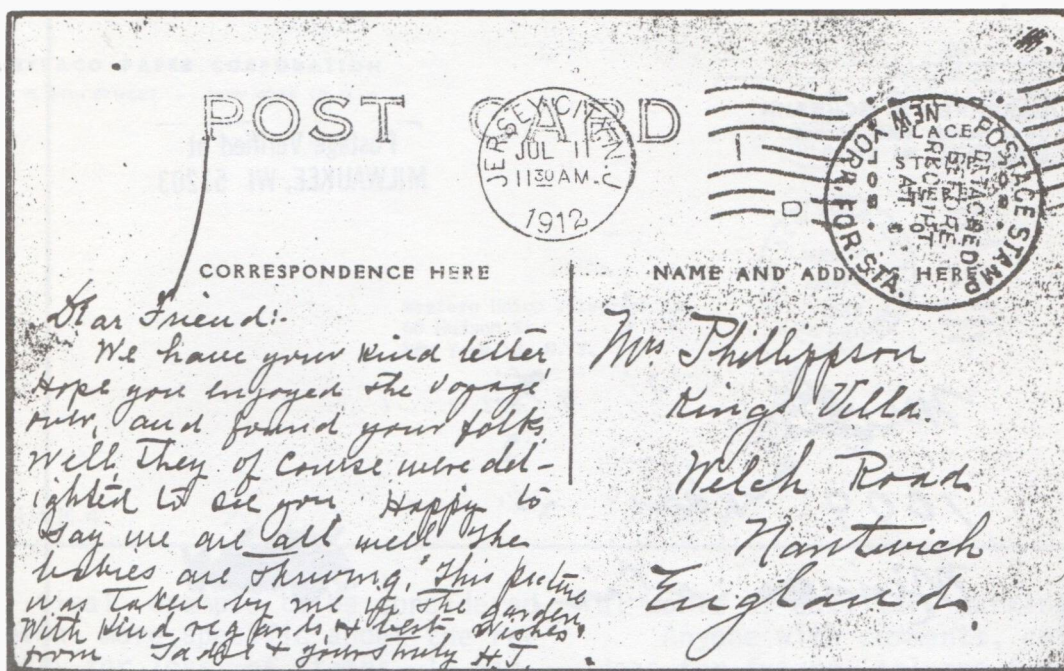 POST CARD
JERSEY CITY, N.J.
JUL 11
11 30 AM.
1912
NEW YORK, FOR. STA.
CORRESPONDENCE HERE
NAME AND ADDRESS HERE
Dear Friend:-
We have your kind letter
Hope you enjoyed the voyage
over, and found your folks
well, They of course were del-
ighted to see you Happy to
say we are all well The
babies are thriving. This picture
was taken by me in the garden
With kind regards & best wishes
from Sadie & yours truly H.J.
Mrs Phillippson
Kings Villa.
Welch Road
Nantwich
England.
Postage Verified at
MILWAUKEE, WI